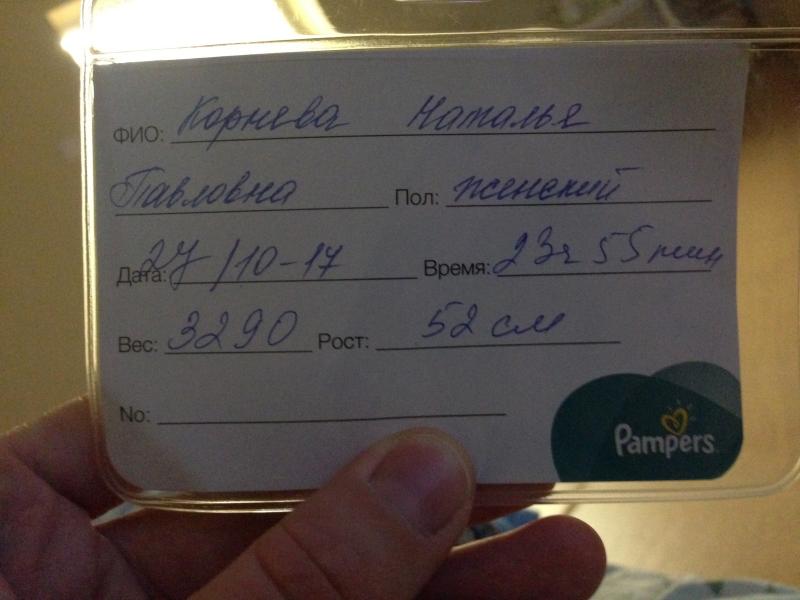 ФИО: Корнева Наталья
Павловна Пол: женский
Дата: 27/10-17 Время: 23ч 55мин
Вес: 3290 Рост: 52 см
No:
Pampers